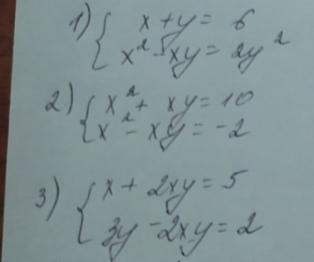 1) { x + y = 6
x² - xy = 2y²
2) { x² + xy = 10
x² - xy = -2
3) { x + 2xy = 5
3y - 2xy = 2